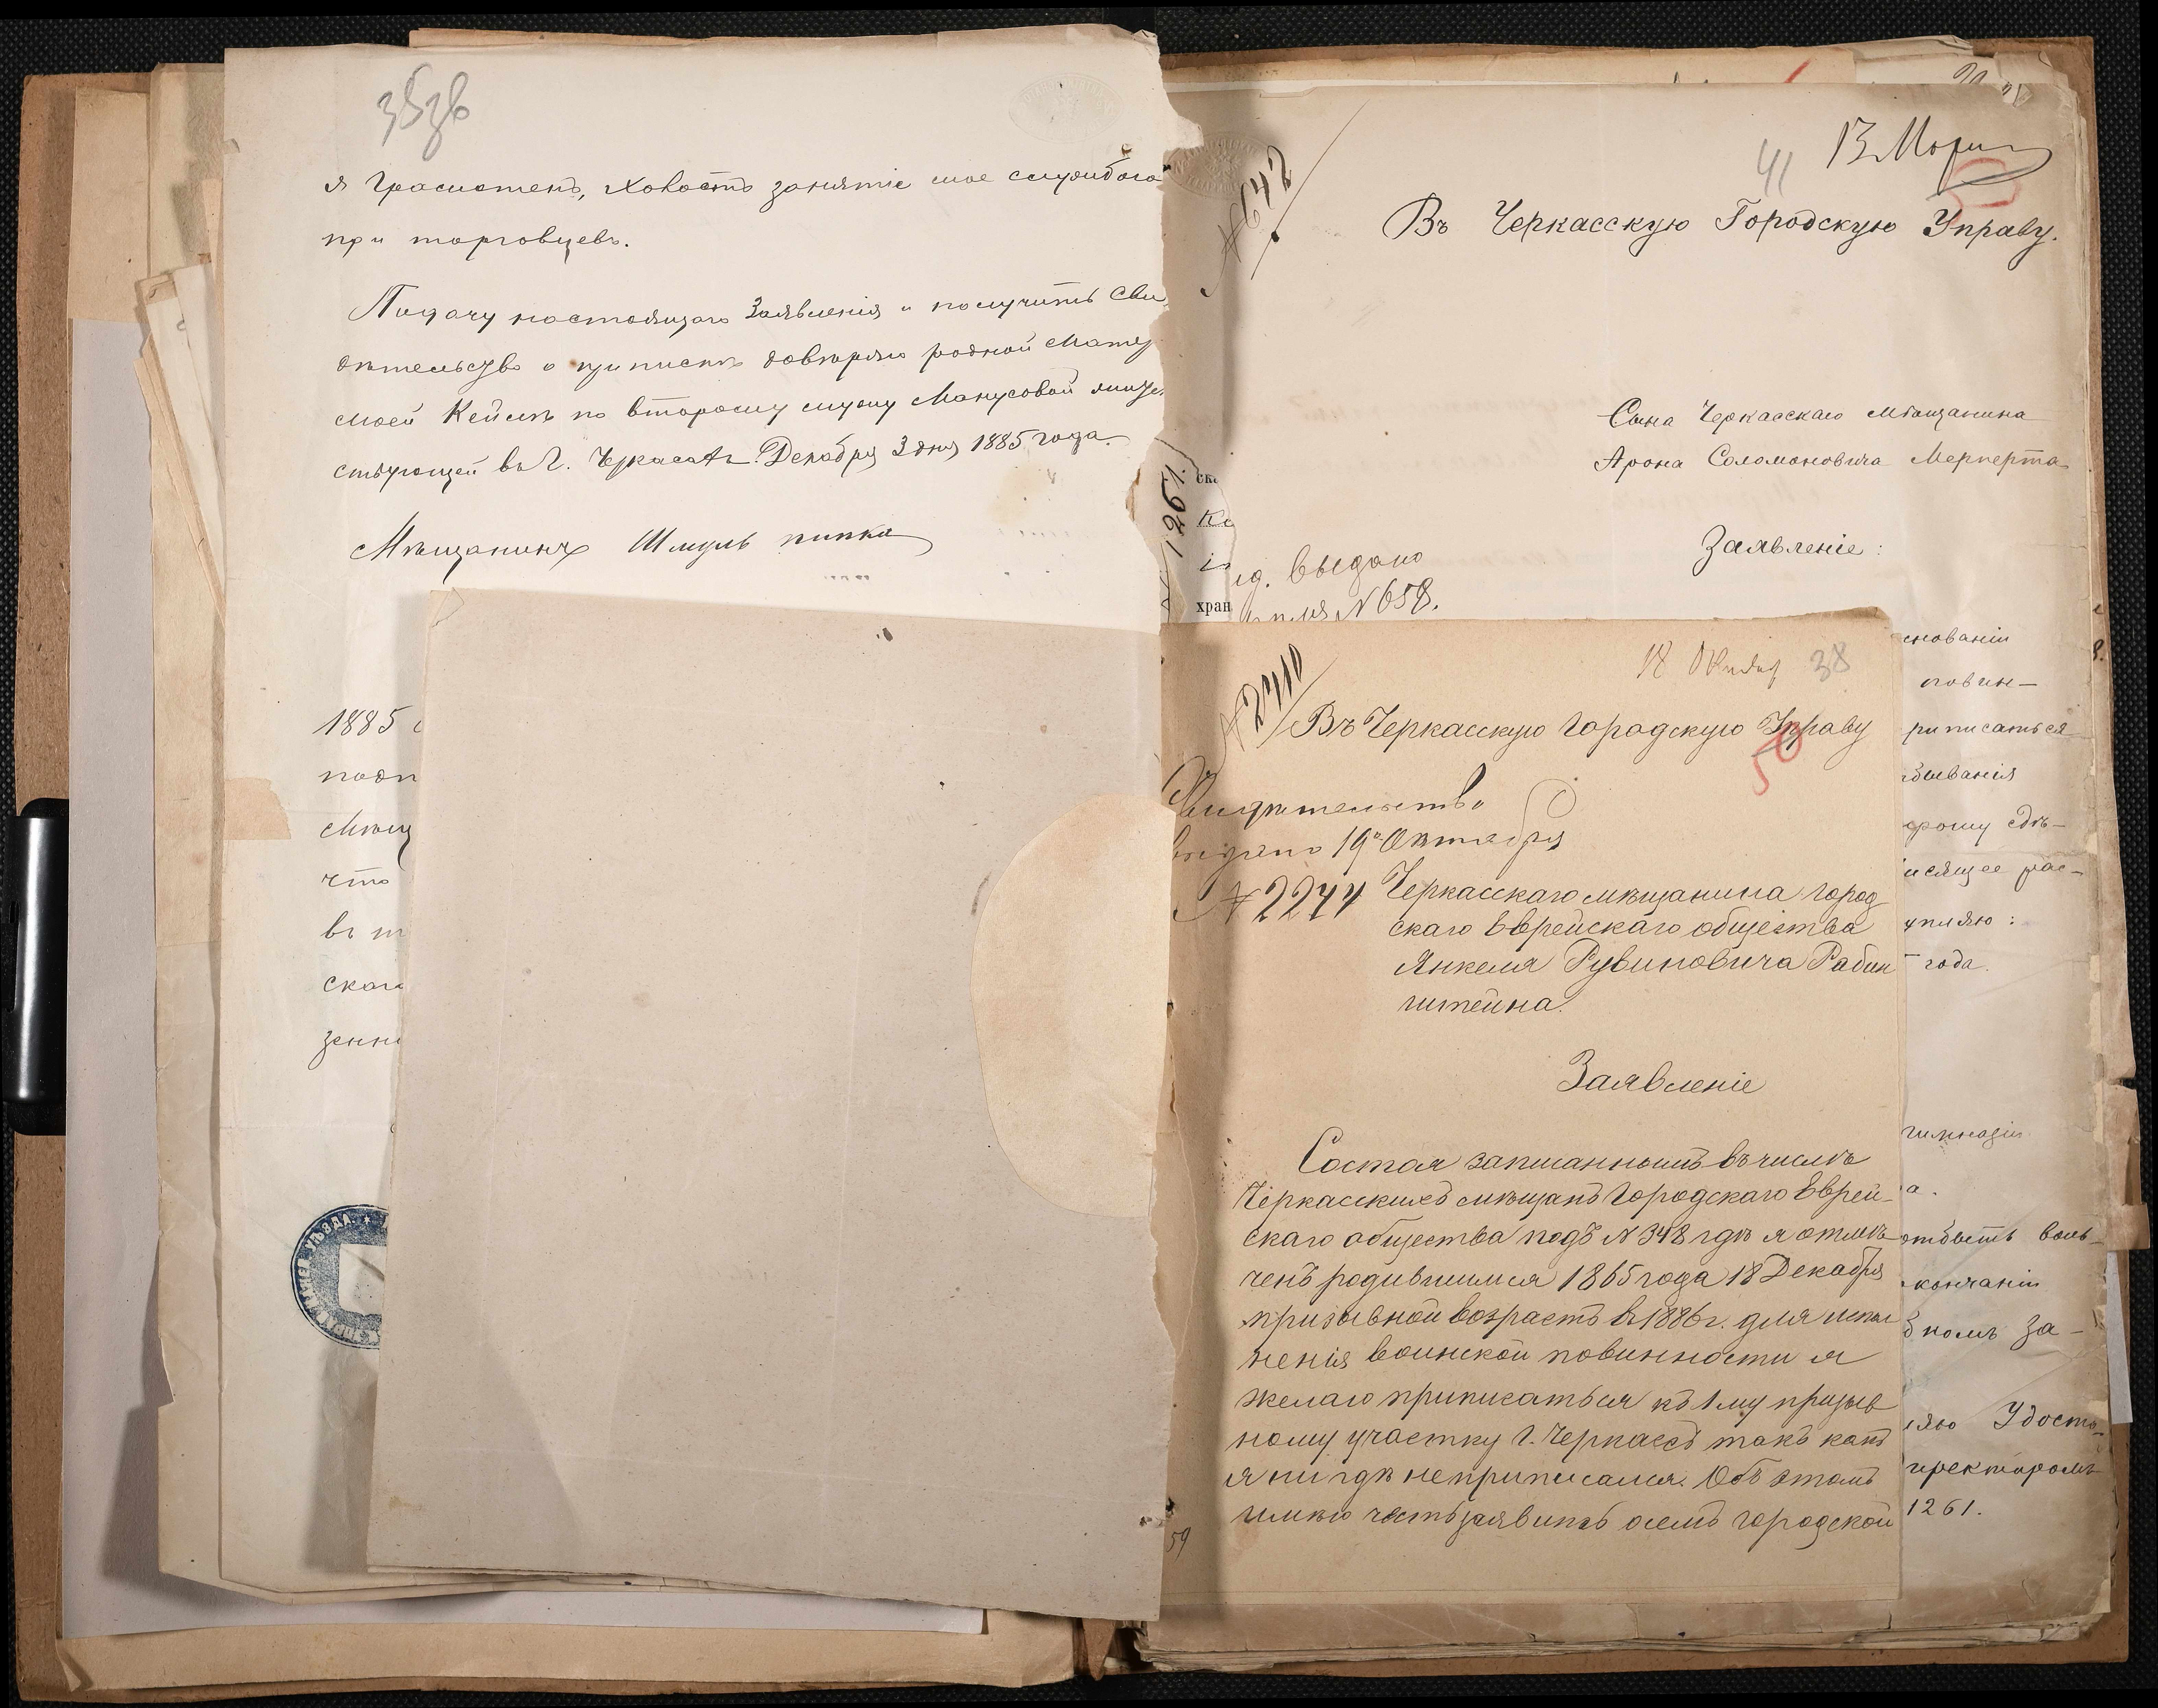 я Грамотенъ, Холостъ занятіе мое службою
при торговцевъ.
Подачу настоящаго Заявленія и получить Сви
дѣтельство о припискѣ довѣряю родной Матеу
моей Кейлѣ по второму мужу Манусовой жите
ствующей въ Г. Черкасахъ. Декабря 3 дня 1885 года.
Мѣщанинъ Шмуль пипко
1885
подп
Мѣщ
что
въ
скаго
зенн
УѢЗДА.
№642
41
13 Марта
Въ Черкасскую Городскую Управу.
Сына Черкасскаго Мѣщанина
Арона Соломоновича Мерперта
Заявленіе:
1867
ск
Ко
хран
выдано
№ 658.
нованіи
повин-
риписаться
быванія
орому сдѣ-
исящее рас-
упляю:
года.
гимназіи
а.
отбыть воин-
кончаніи
номъ За-
ляю Удосто-
иректоромъ
1261.
№2710
18 Октяб 38
Въ Черкасскую Городскую Управу
50
Свидѣтельство
выдано 19го Октября
№ 2244
Черкасскаго мѣщанина город
скаго Еврейскаго общества
Янкеля Рувиновича Рабин
штейна.
Заявленіе
Состоя записаннымъ въ числѣ
Черкасскихъ мѣщанъ Городскаго Еврей-
скаго общества подъ № 348 гдѣ я отмѣ-
ченъ родившимся 1865 года 18 Декабря
призывной возрастъ въ 1886 г. для испол
ненія воинской повинности я
желаю приписаться къ 1му призыв
ному участку г. Черкассъ такъ какъ
я ни гдѣ не приписался. Объ этомъ
имѣю честь заявить осемъ городской
59